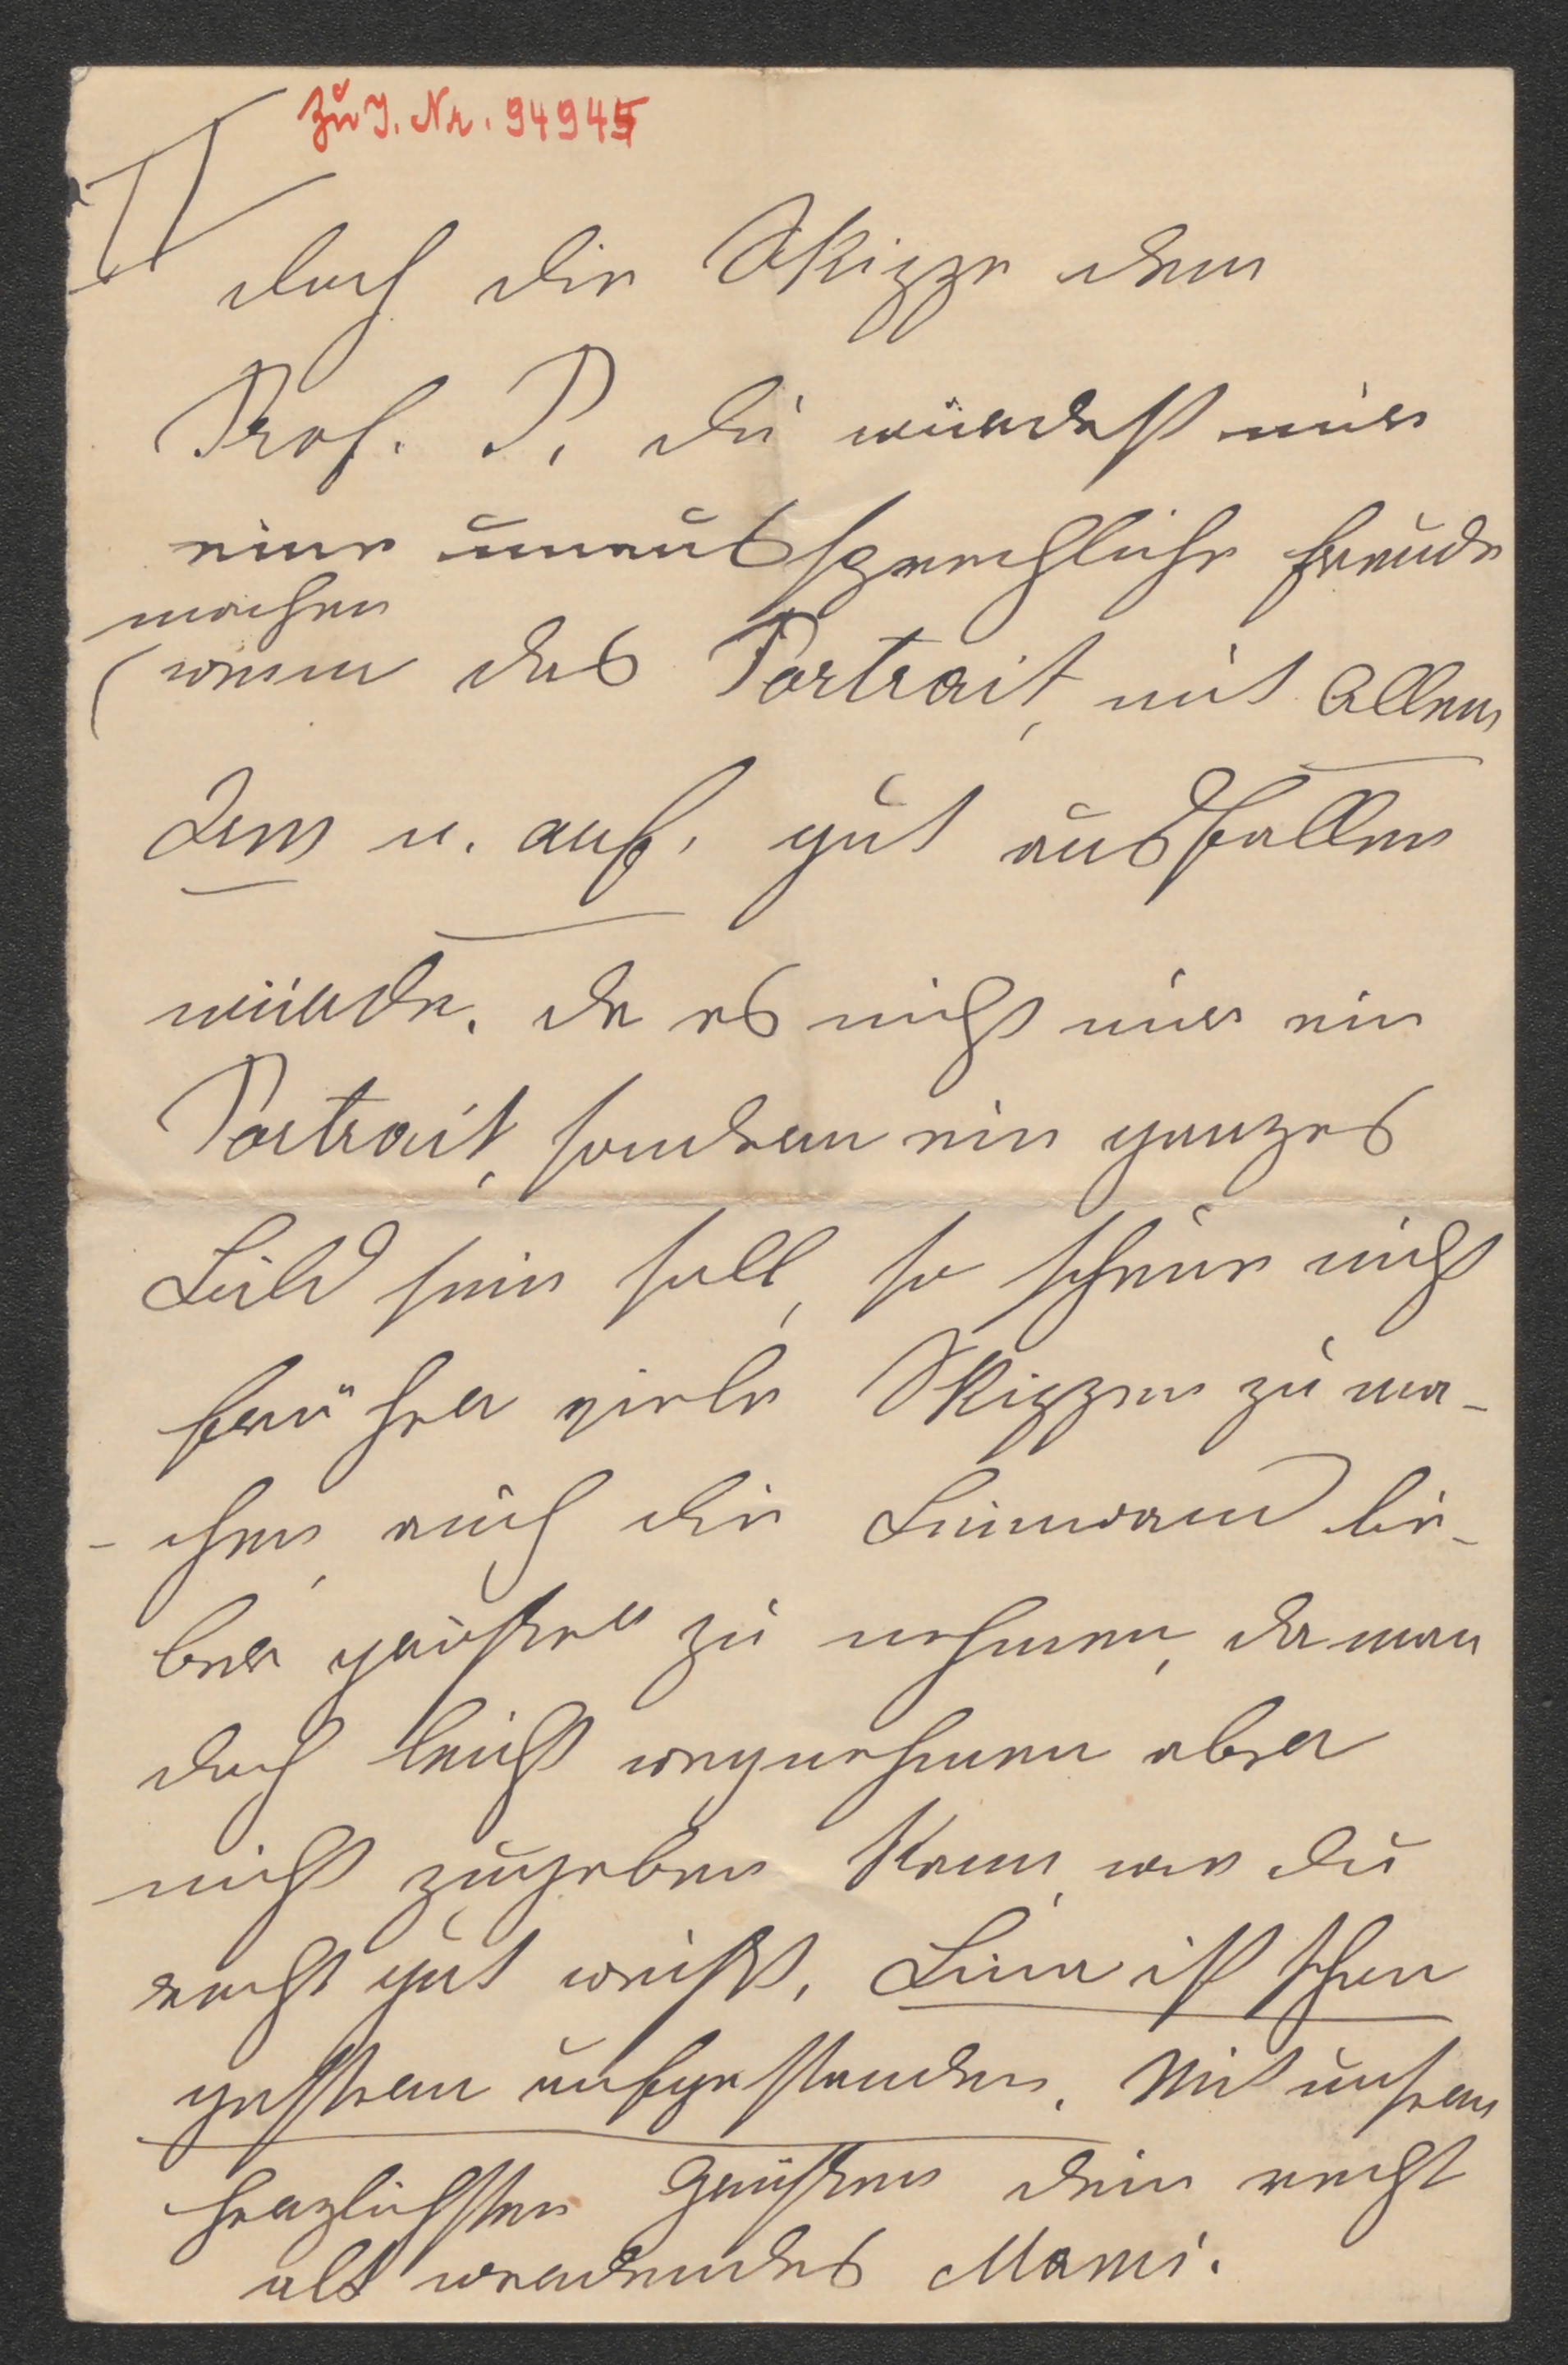 Zu J. Nr. 94945
IV
doch die Skizze dem
Prof. P. du würdest mir
eine unaussprechliche Freude
machen
(wenn das Portrait, mit Allem
Dem u. auf. gut ausfallen
würde. da es nicht nur ein
Portrait, sondern ein ganzes
Bild sein soll, so scheue nicht
früher viele Skizzen zu ma-
-chen, auch die Leinwand lie-
ber größer zu nehmen, da man
doch leicht wegnehmen aber
nicht zugeben kann, wie du
recht gut weißt. Lina ist schon
gestern aufgestanden. Mit unsern
herzlichsten Grüßen dein recht
alt werdendes Mami.